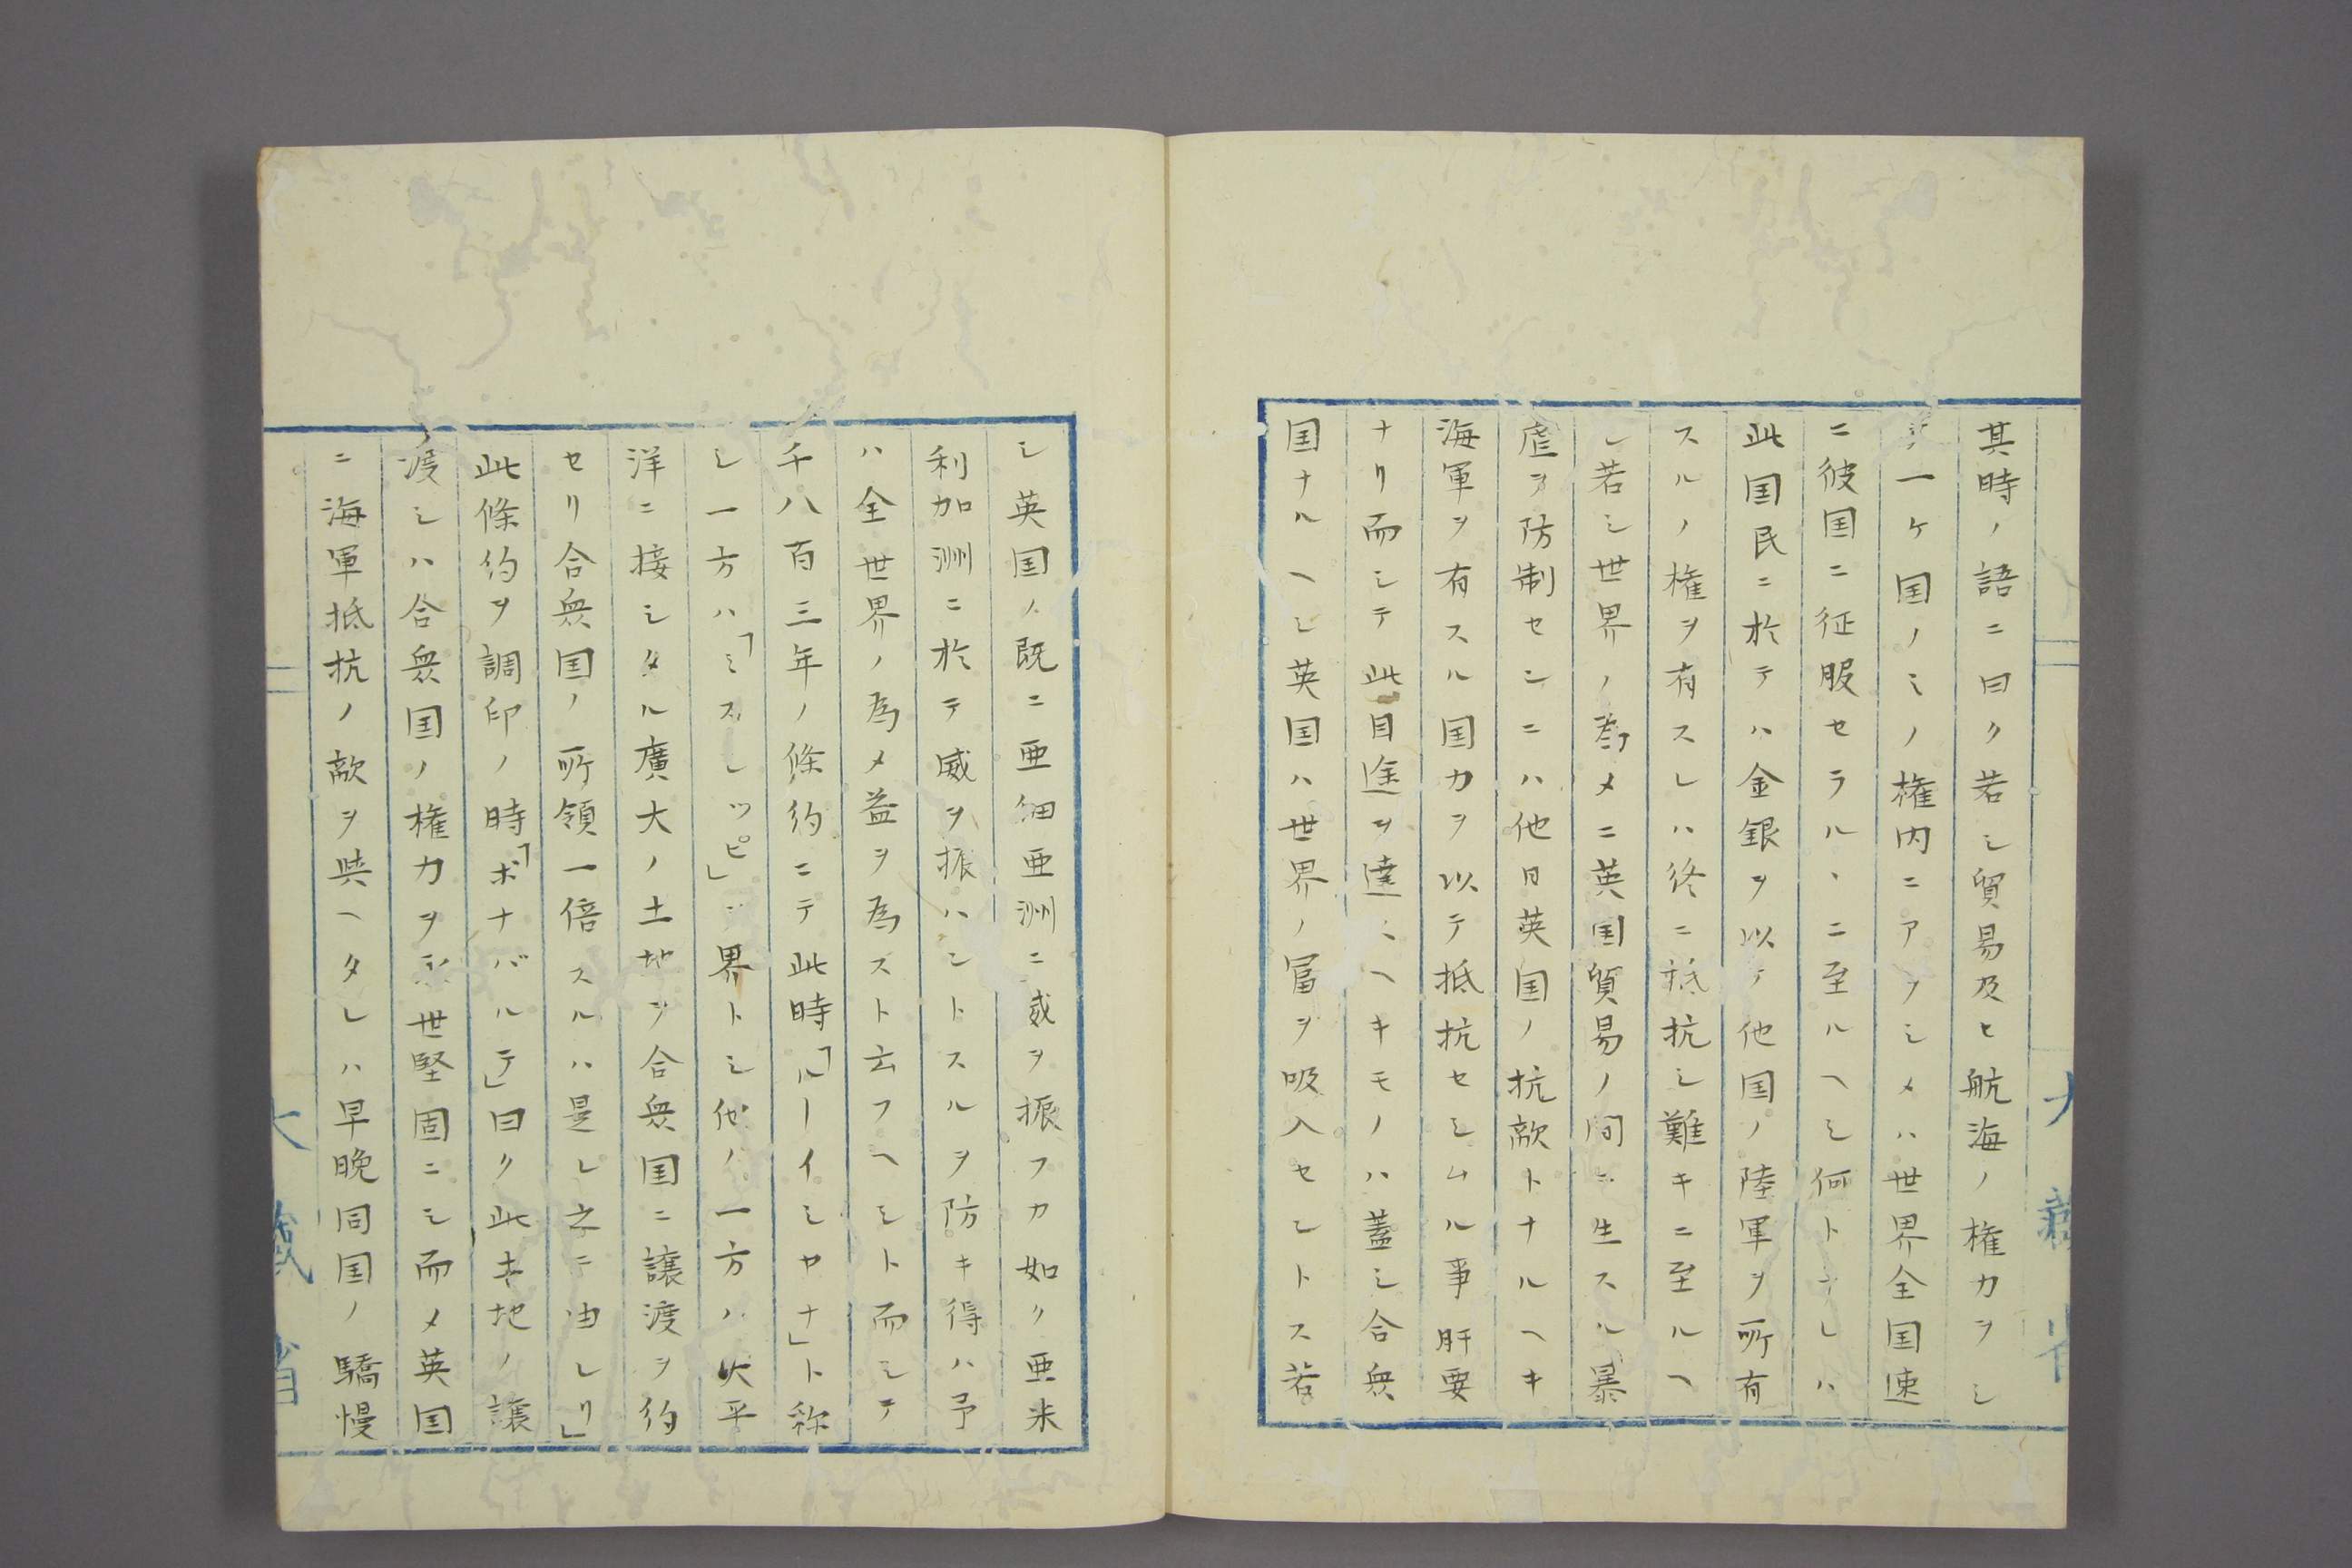 其時ノ語ニ曰ク若シ貿易及ヒ航海ノ権力ヲシ
テ一ケ国ノミノ権内ニアラシメハ世界全国速
ニ彼国ニ征服セラル、ニ至ルヘシ何トナレハ
此国民ニ於テハ金銀ヲ以テ他国ノ陸軍ヲ所有
スルノ権ヲ有スレハ終ニ抵抗シ難キニ至ルヘ
シ若シ世界ノ為メニ英国貿易ノ間ニ生スル暴
虐ヲ防制センニハ他日英国ノ抗敵トナルヘキ
海軍ヲ有スル国力ヲ以テ抵抗セシムル事肝要
ナリ而シテ此目途ヲ達スヘキモノハ蓋シ合衆
国ナルヘシ英国ハ世界ノ冨ヲ吸入セントス若
シ英国ノ既ニ亜細亜洲ニ威ヲ振フカ如ク亜米
利加洲ニ於テ威ヲ振ハントスルヲ防キ得ハ予
ハ全世界ノ為メ益ヲ為スト云フヘシト而シテ
千八百三年ノ條約ニテ此時「ルーイシヤナ」ト称
シ一方ハ「ミスレツピ」ニ界トシ他ノ一方ハ太平
洋ニ接シタル廣大ノ土地ヲ合衆国ニ譲渡ヲ約
セリ合衆国ノ所領一倍スルハ是レ之ニ由レリ」
此條約ヲ調印ノ時「ボナパルテ」曰ク此土地ノ譲
渡シハ合衆国ノ権力ヲ永世堅固ニシ而メ英国
ニ海軍抵抗ノ敵ヲ与ヘタレハ早晩同国ノ驕慢
大藏省
大藏省